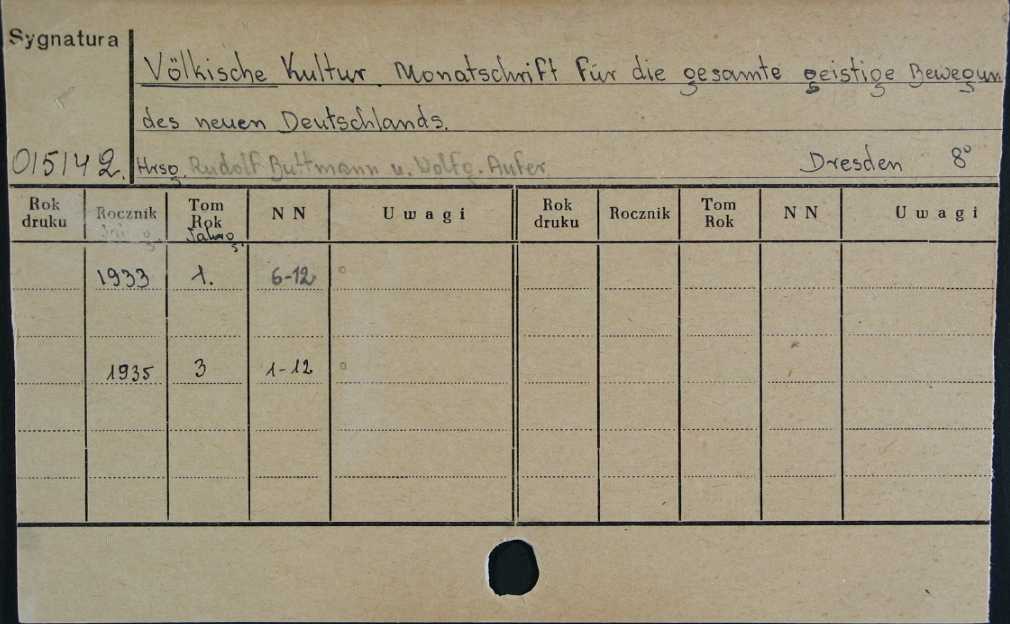 Sygnatura
Völkische Kultur Monatschrift für die gesamte geistige Bewegun
des neuen Deutschlands.
015142. Hrsg. Rudolf Buttmann u. Wolfg. Dresden 8°
Rok druku Rocznik Tom Rok NN Uwagi Rok druku Rocznik Tom Rok NN Uwagi
1933 1. 6-12
1935 3 1-12